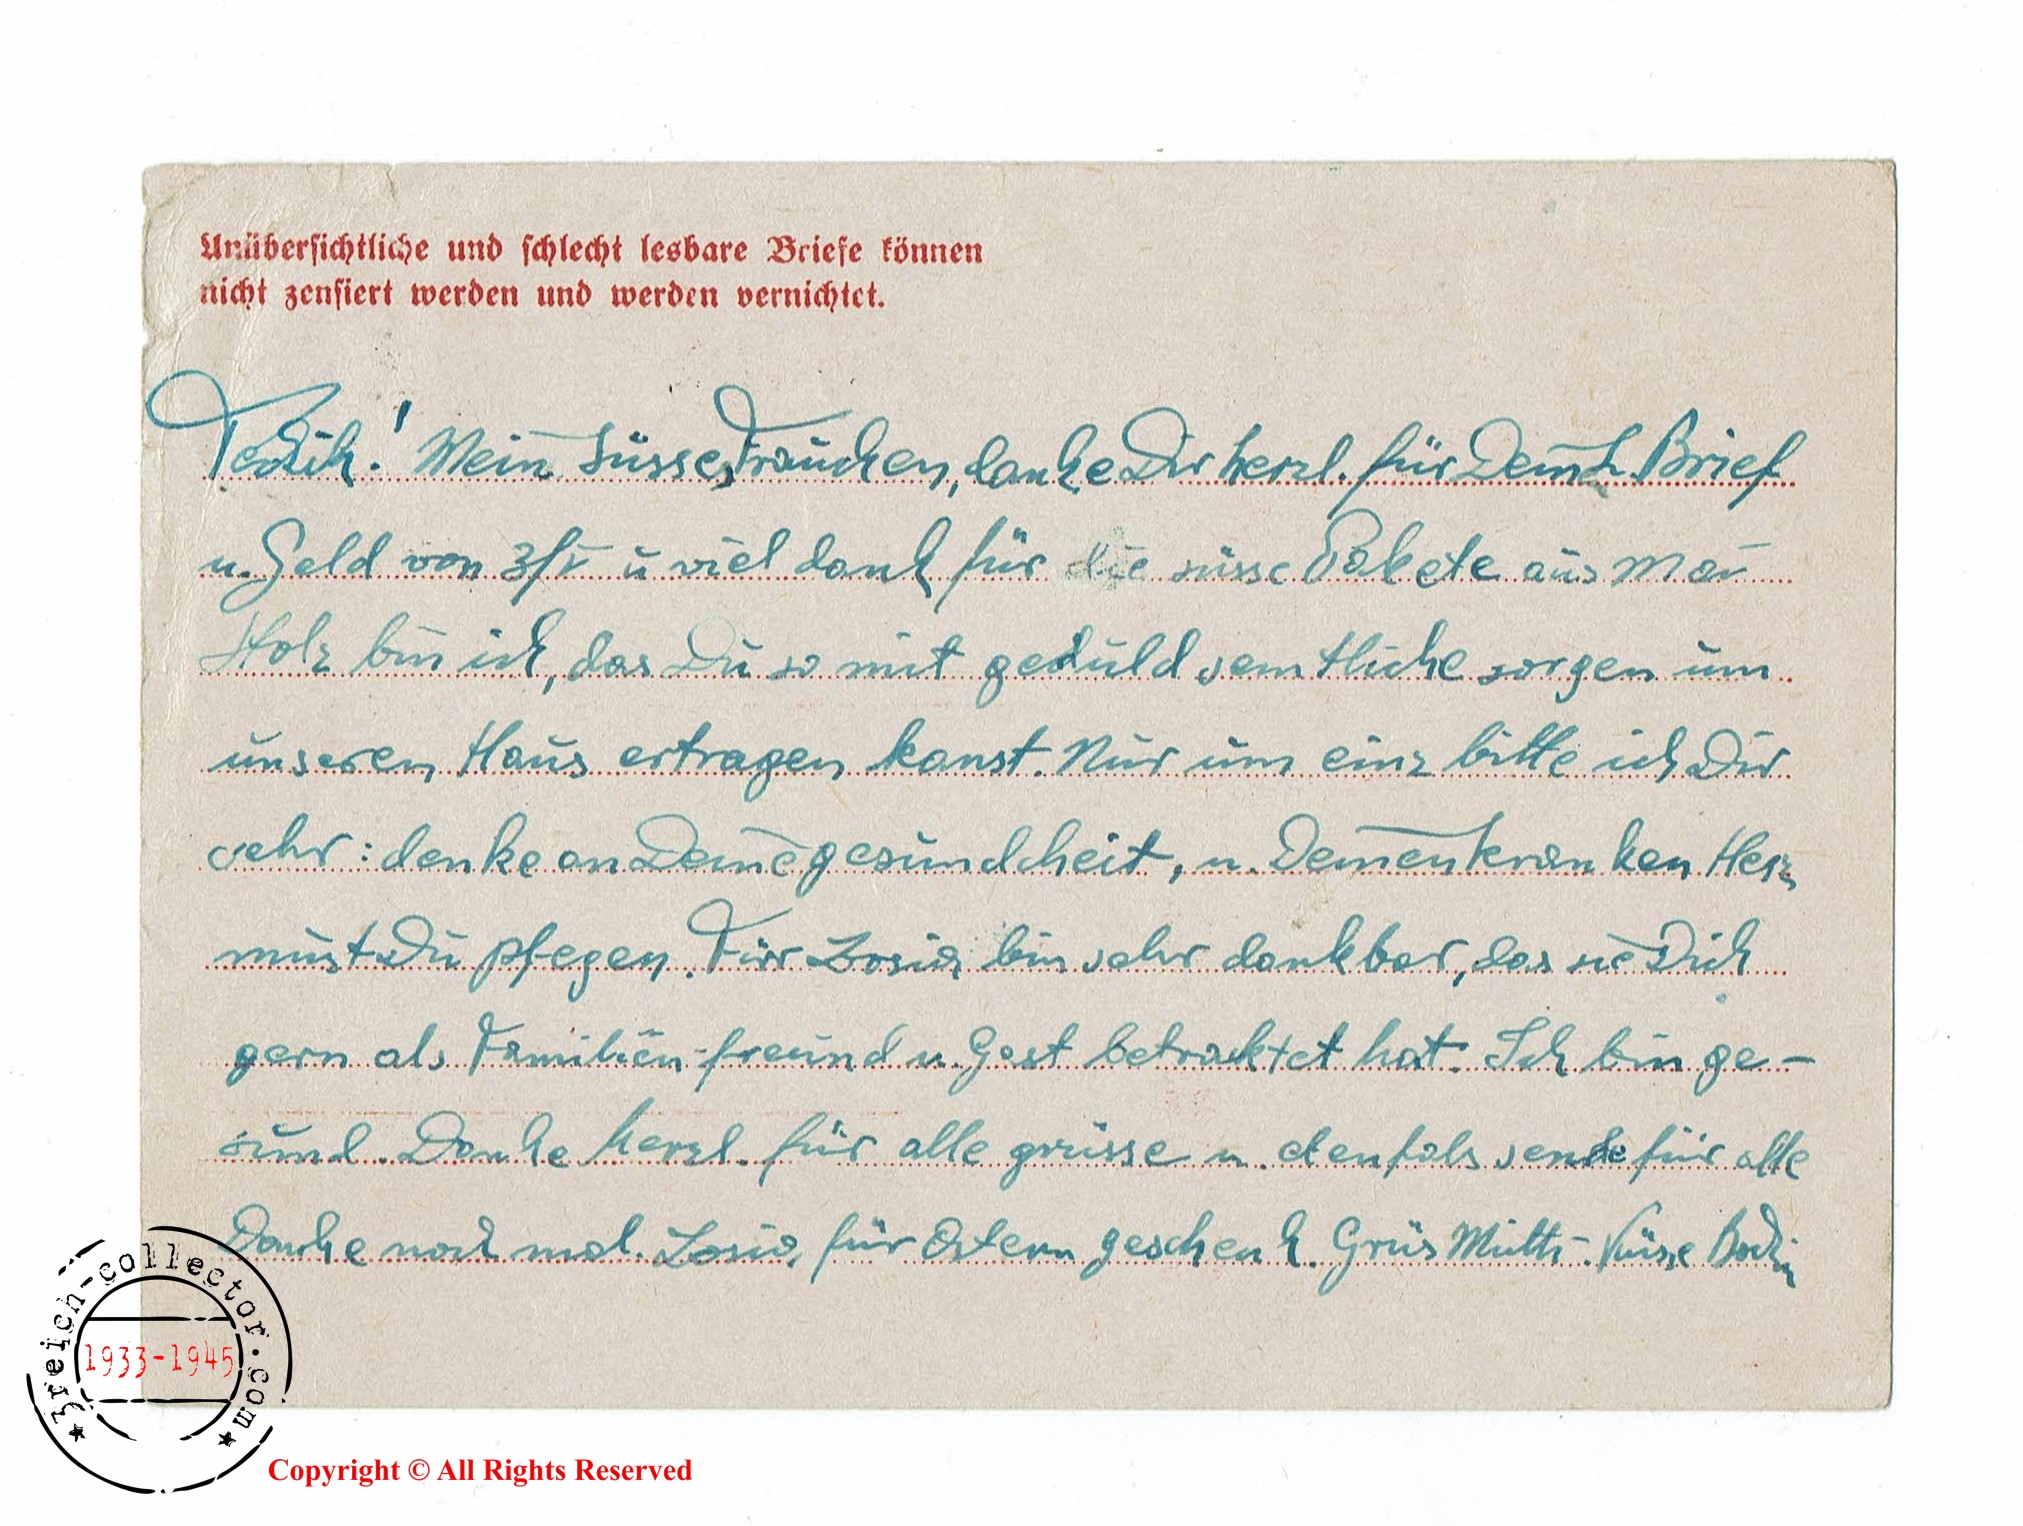 Unübersichtliche und schlecht lesbare Briefe können
nicht zensiert werden und werden vernichtet.
Mein süsses Frauchen, danke Dir herzl. für Brief
u. Geld von 3/V u viel dank für die süsse Pakete aus Mai
Stolz bin ich, das Du so mit geduld semtliche sorgen um
unseren Haus ertragen kanst. Nur um einz bitte ich Dir
sehr: denke an Deine gesundcheit, u. Deinen kranken Herz
must Du pflegen. Fürr Zosia bin sehr dankbar, das sie Dich
gern als Familien-freund u. Gast betrachtet hat. Ich bin ge-
sund. Danke herzl. für alle grüsse u. ebenfals sende für alle
Danke noch mal Zosia für Ostern geschenk. Grüs Mutti. Küsse
3reich-collector.com
1933-1945
Copyright © All Rights Reserved